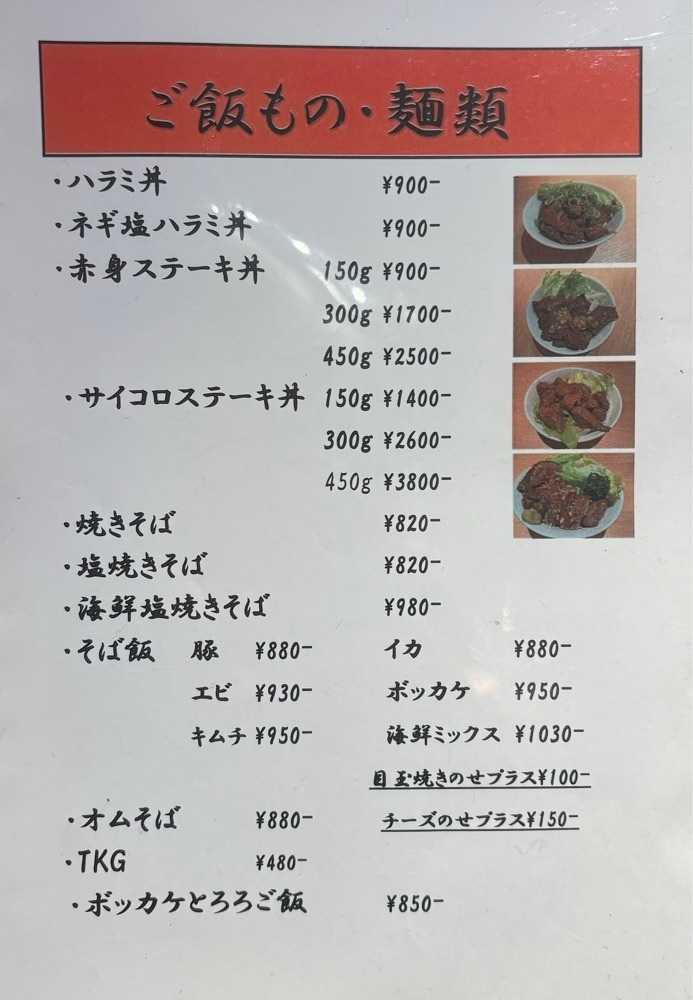 ご飯もの・麺類
・ハラミ丼 ¥900-
・ネギ塩ハラミ丼 ¥900-
・赤身ステーキ丼 150g ¥900-
300g ¥1700-
450g ¥2500-
・サイコロステーキ丼 150g ¥1400-
300g ¥2600-
450g ¥3800-
・焼きそば ¥820-
・塩焼きそば ¥820-
・海鮮塩焼きそば ¥980-
・そば飯 豚 ¥880- イカ ¥880-
エビ ¥930- ボッカケ ¥950-
キムチ ¥950- 海鮮ミックス ¥1030-
目玉焼きのせプラス¥100-
・オムそば ¥880- チーズのせプラス¥150-
・TKG ¥480-
・ボッカケとろろご飯 ¥850-